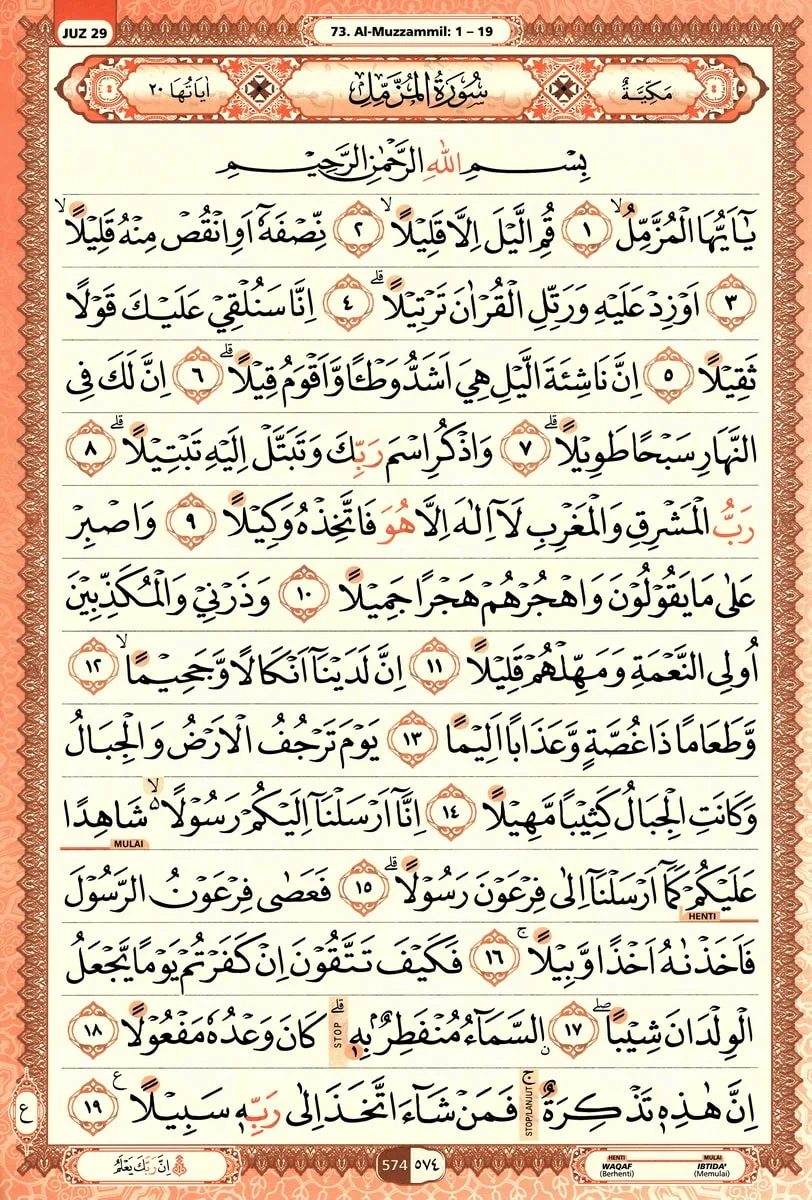 JUZ 29
73. Al-Muzzammil: 1 – 19
مَكِّيَّةٌ سُوْرَةُ الْمُزَّمِّلِ اٰيَاتُهَا ٢٠
بِسْمِ اللّٰهِ الرَّحْمٰنِ الرَّحِيْمِ
يٰٓاَيُّهَا الْمُزَّمِّلُۙ ١ قُمِ الَّيْلَ اِلَّا قَلِيْلًاۙ ٢ نِّصْفَهٗٓ اَوِ انْقُصْ مِنْهُ قَلِيْلًاۙ
٣ اَوْ زِدْ عَلَيْهِ وَرَتِّلِ الْقُرْاٰنَ تَرْتِيْلًاۗ ٤ اِنَّا سَنُلْقِيْ عَلَيْكَ قَوْلًا
ثَقِيْلًا ٥ اِنَّ نَاشِئَةَ الَّيْلِ هِيَ اَشَدُّ وَطْـًٔا وَّاَقْوَمُ قِيْلًاۗ ٦ اِنَّ لَكَ فِى
النَّهَارِ سَبْحًا طَوِيْلًاۗ ٧ وَاذْكُرِ اسْمَ رَبِّكَ وَتَبَتَّلْ اِلَيْهِ تَبْتِيْلًاۗ ٨
رَبُّ الْمَشْرِقِ وَالْمَغْرِبِ لَآ اِلٰهَ اِلَّا هُوَ فَاتَّخِذْهُ وَكِيْلًا ٩ وَاصْبِرْ
عَلٰى مَا يَقُوْلُوْنَ وَاهْجُرْهُمْ هَجْرًا جَمِيْلًا ١٠ وَذَرْنِيْ وَالْمُكَذِّبِيْنَ
اُولِى النَّعْمَةِ وَمَهِّلْهُمْ قَلِيْلًا ١١ اِنَّ لَدَيْنَآ اَنْكَالًا وَّجَحِيْمًاۙ ١٢
وَّطَعَامًا ذَا غُصَّةٍ وَّعَذَابًا اَلِيْمًا ١٣ يَوْمَ تَرْجُفُ الْاَرْضُ وَالْجِبَالُ
وَكَانَتِ الْجِبَالُ كَثِيْبًا مَّهِيْلًا ١٤ اِنَّآ اَرْسَلْنَآ اِلَيْكُمْ رَسُوْلًا ەۙ شَاهِدًا
MULAI
عَلَيْكُمْ كَمَآ اَرْسَلْنَآ اِلٰى فِرْعَوْنَ رَسُوْلًاۗ ١٥ فَعَصٰى فِرْعَوْنُ الرَّسُوْلَ
HENTI
فَاَخَذْنٰهُ اَخْذًا وَّبِيْلًاۚ ١٦ فَكَيْفَ تَتَّقُوْنَ اِنْ كَفَرْتُمْ يَوْمًا يَّجْعَلُ
الْوِلْدَانَ شِيْبًاۖ ١٧ ۨالسَّمَاۤءُ مُنْفَطِرٌۢ بِهٖۗ STOP كَانَ وَعْدُهٗ مَفْعُوْلًا ١٨
اِنَّ هٰذِهٖ تَذْكِرَةٌۚ STOP/LANJUT فَمَنْ شَاۤءَ اتَّخَذَ اِلٰى رَبِّهٖ سَبِيْلًا ࣖ ١٩
ع
اِنَّ رَبَّكَ يَعْلَمُ
574 ٥٧٤
HENTI WAQAF (Berhenti)
MULAI IBTIDA' (Memulai)